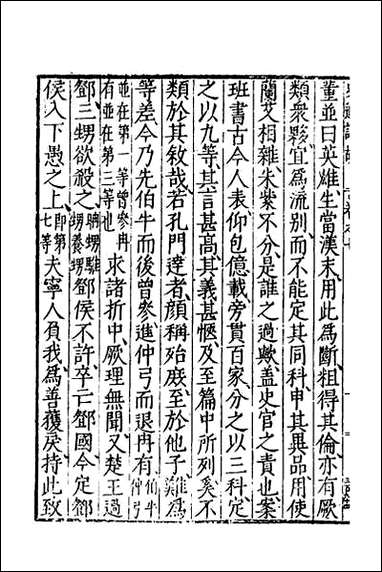 董並曰英雄生當漢末用此爲斷粗得其倫亦有厥
類衆夥宜爲流別而不能定其同科申其異品用使
蘭艾相雜朱紫不分是誰之過歟蓋史官之責也案
班書古今人表仰包億載旁貫百家分之以三科定
之以九等其言甚高其義甚愜及至篇中所列奚不
類於其敘哉若孔門達者顏稱殆庶至於他子難爲
等差今乃先伯牛而後曾參進仲弓而退冉有伯牛仲弓
並在第一等曾參冉有並在第三等也求諸折中厥理無聞又楚王過
鄧三甥欲殺之聃甥騅甥養甥鄧侯不許卒亡鄧國今定鄧
侯入下愚之上即第七等夫寧人負我爲善獲戾持此致